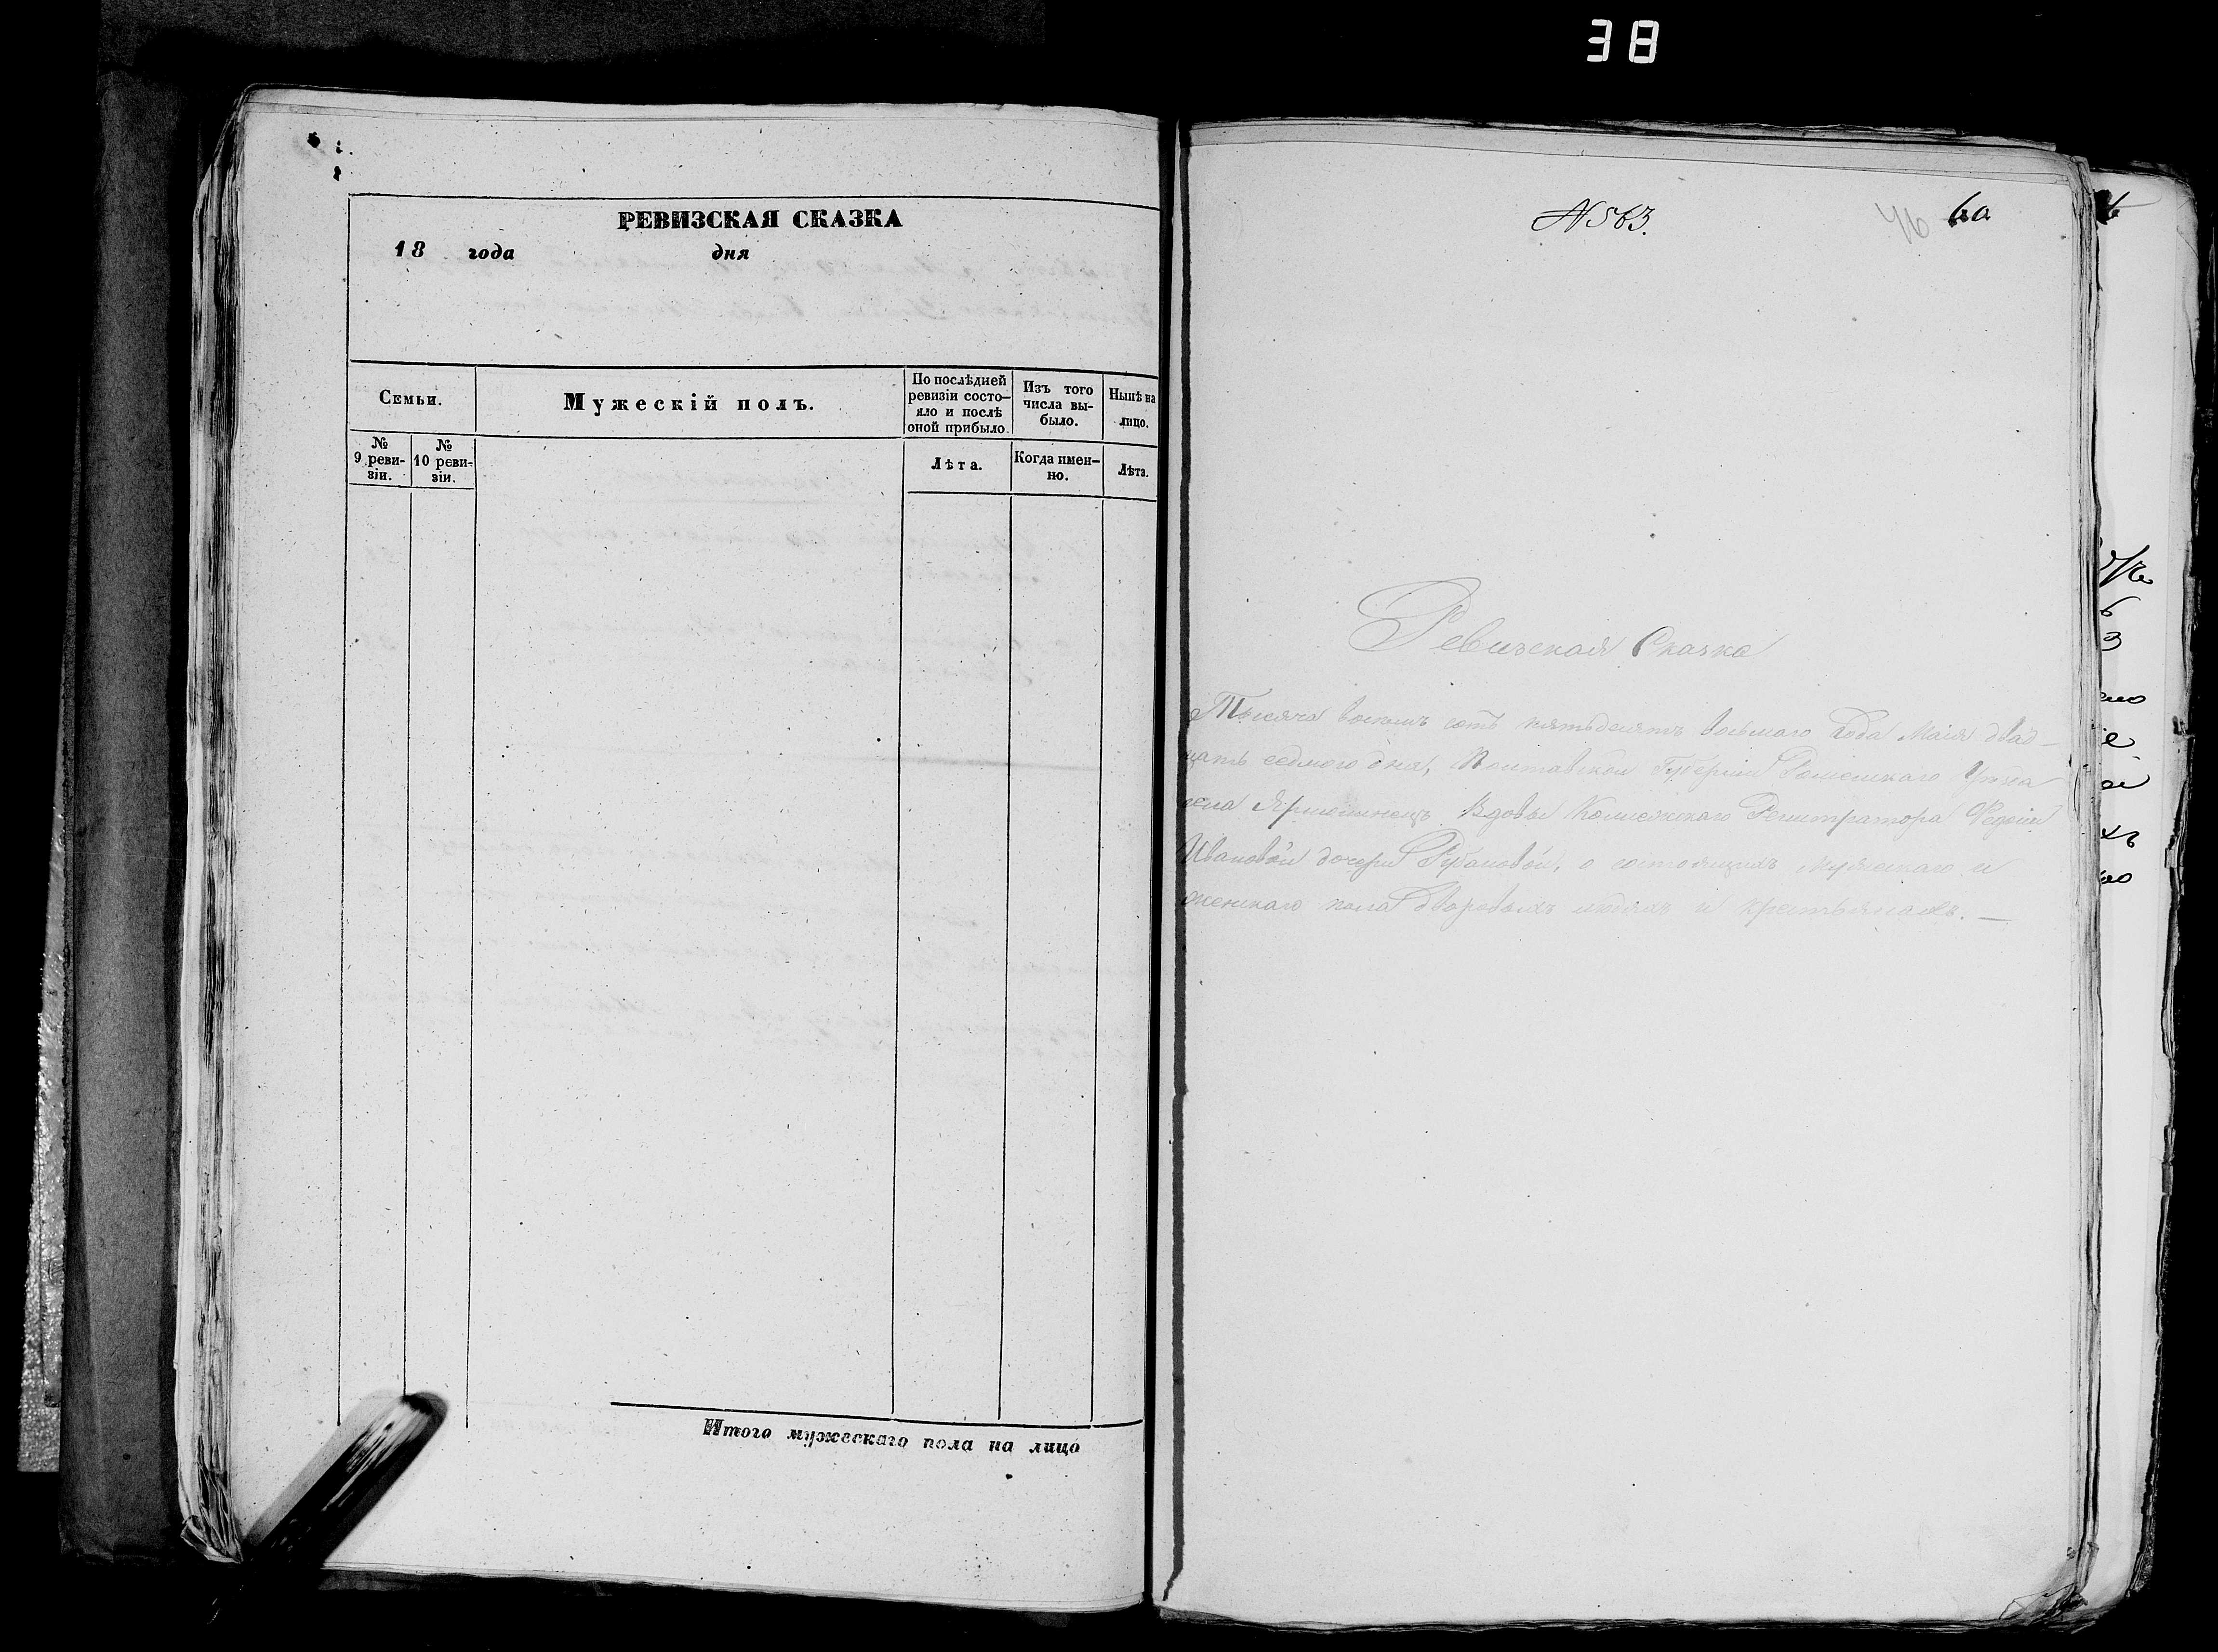 38
РЕВИЗСКАЯ СКАЗКА
18 года дня
Семьи.
Мужескій полъ.
По послѣдней
ревизіи состо-
яло и послѣ
оной прибыло.
Изъ того
числа вы-
было.
Нынѣ на
лицо.
№
9 реви-
зіи.
№
10 реви-
зіи.
Лѣта.
Когда имен-
но.
Лѣта.
Итого мужескаго пола на лицо
N 563.
46
60
Ревизская Сказка
Тысяча восемь сотъ пятьдесятъ восьмаго Года Маія двад-
цать седмого дня, Полтавской Губерніи Роменскаго Уѣзда
села Вдовы Коллежскаго Регистратора
Ивановой дочери Рубановой, о состоящихъ мужескаго и
женскаго пола Дворовыхъ людяхъ и крестьянахъ. —